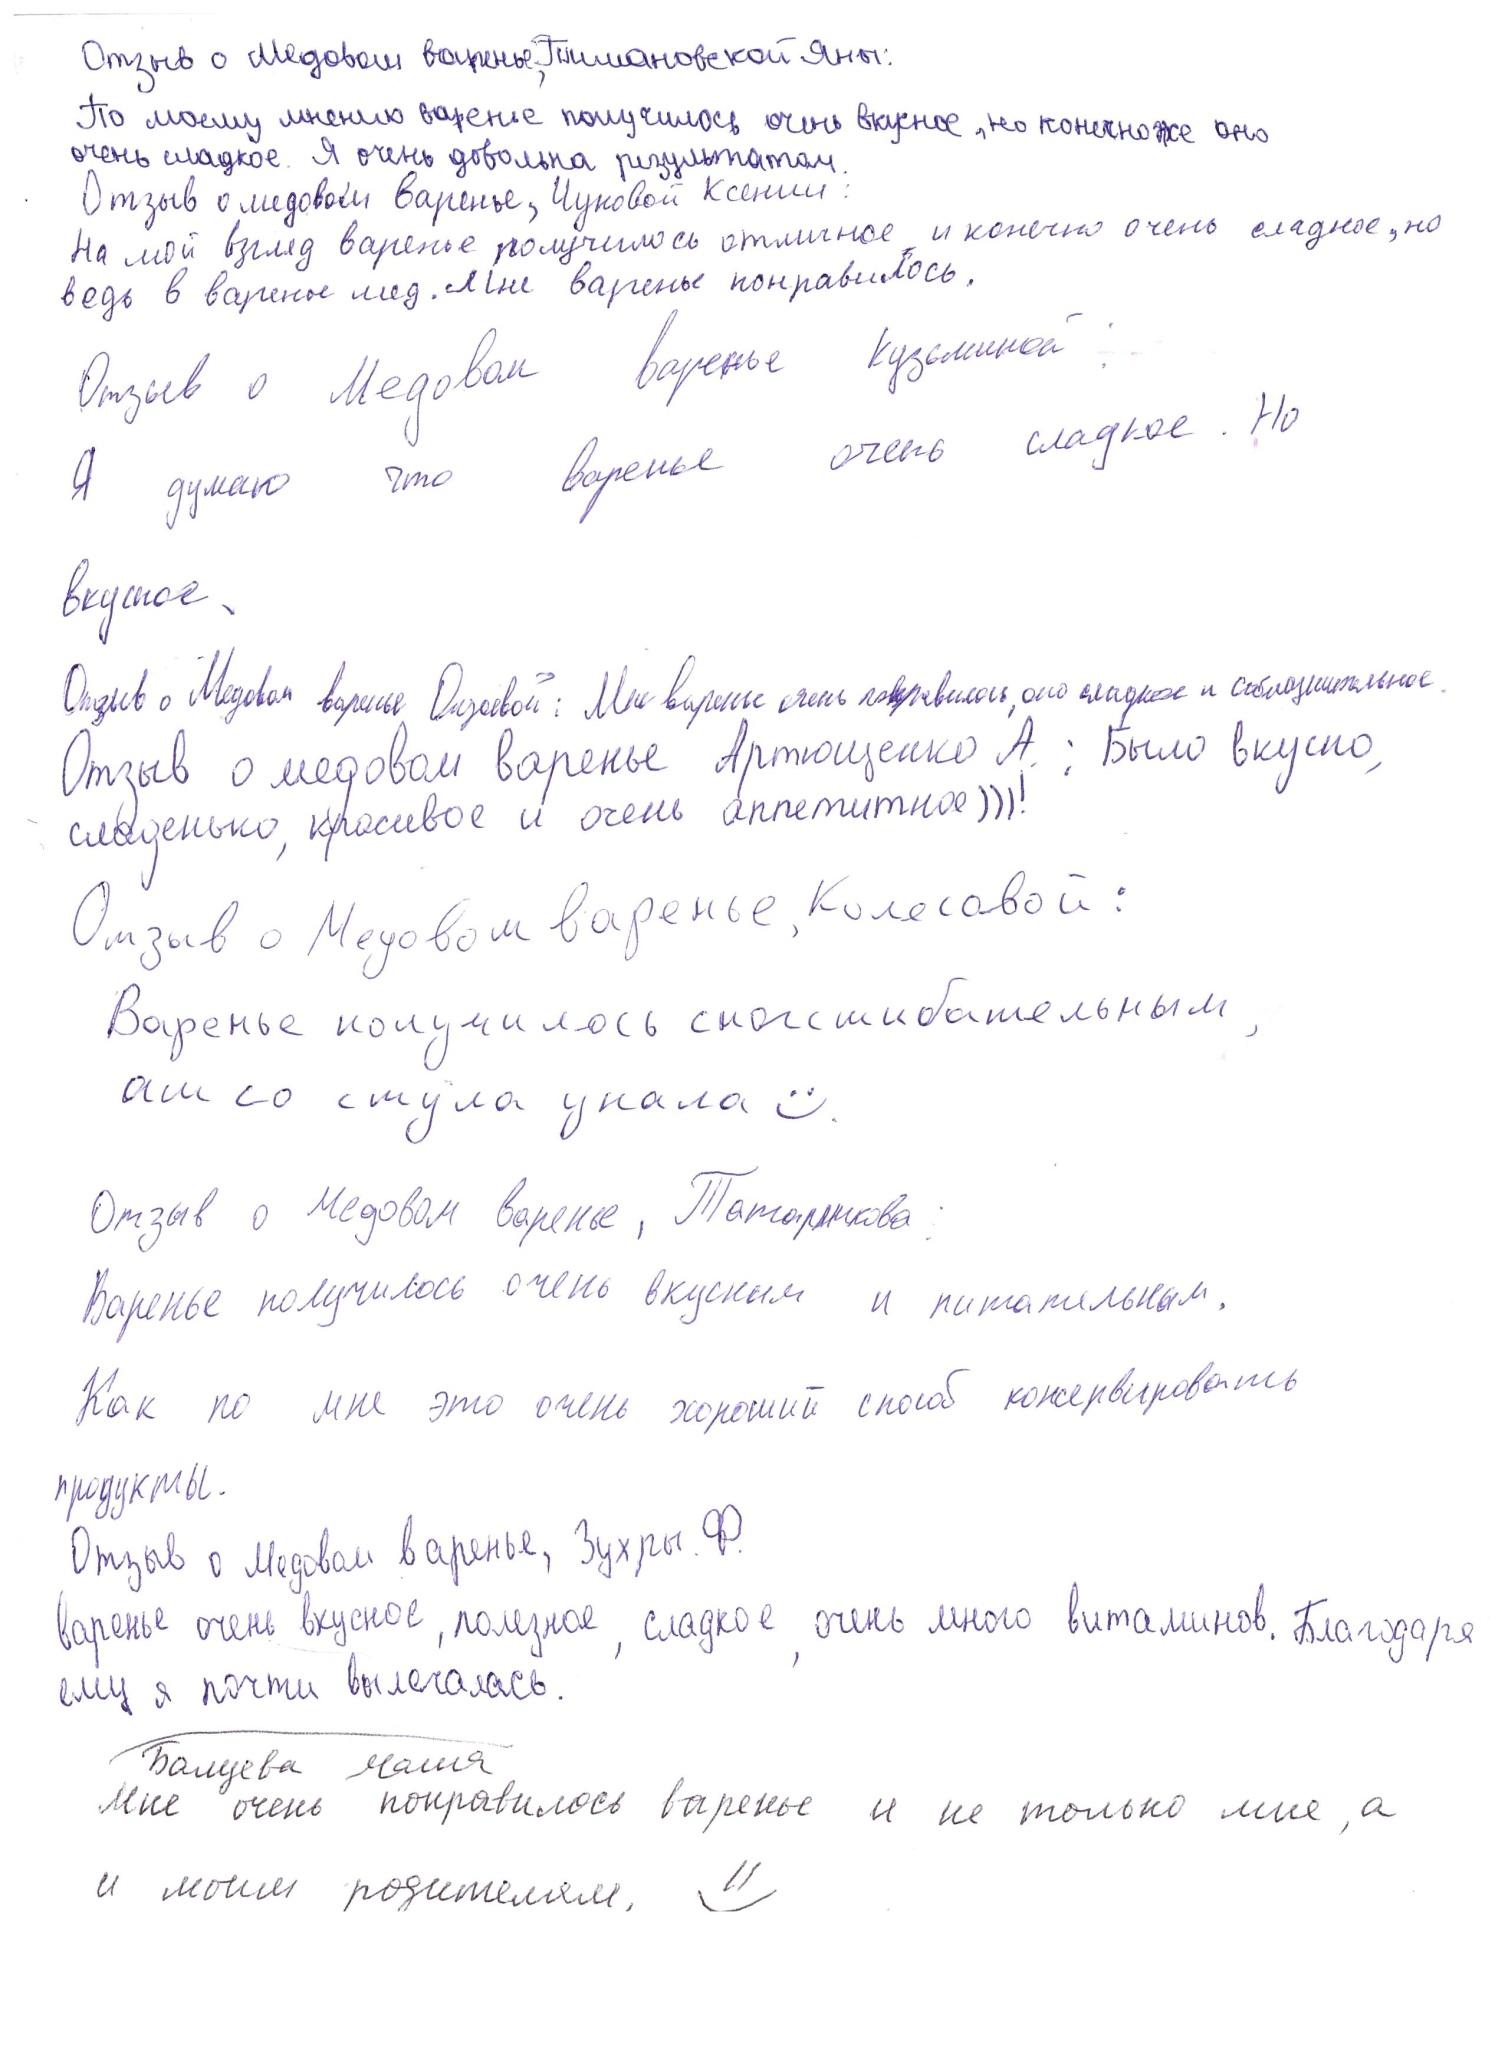 Отзыв о Медовом варенье, Тимановской Яны:
По моему мнению варенье получилось очень вкусное, но конечно же оно
очень сладкое. Я очень довольна результатом.
Отзыв о медовом варенье, Чуковой Ксении:
На мой взгляд варенье получилось отличное, и конечно очень сладкое, но
ведь в варенье мед. Мне варенье понравилось.
Отзыв о Медовом варенье Кузьминой:
Я думаю что варенье очень сладкое. Но
вкусное.
Отзыв о Медовом варенье: Мне варенье очень понравилось, оно сладкое и соблазнительное.
Отзыв о медовом варенье Артющенко А.: Было вкусно,
сладенько, красивое и очень аппетитное)))!
Отзыв о Медовом варенье, Колесовой:
Варенье получилось сногсшибательным,
аш со стула упала
Отзыв о Медовом варенье, Татарникова:
Варенье получилось очень вкусным и питательным.
Как по мне это очень хороший способ консервировать
продукты.
Отзыв о Медовом варенье, Зухры. Ф.
варенье очень вкусное, полезное, сладкое, очень много витаминов. Благодаря
ему я почти вылечалась.
Балуева Маша
Мне очень понравилось варенье и не только мне, а
и моим родителям.